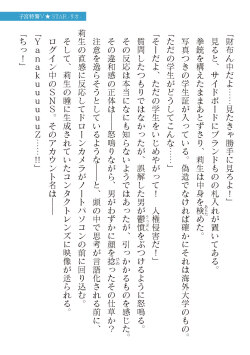 子宮特攻V★STAR、リオ
「財布ん中だよ……見たきゃ勝手に見ろよ！」
見ると、サイドボードにブランドもの札入れが置いてある。
拳銃を構えたままわとずさり、莉生は中身を検めた。
写真つきの学生証が入っている。偽造でなければそれは海外大学のもの。
「ただの学生がどうしてこんな……」
「そーだよ、ただの学生をいじめやがって！　人権侵害だ！」
質問したつもりではなかったが、誤解した男が鬱憤をぶつけるように怒鳴る。
その反応は本当になにも知らないようではあったが、引っかかるものを感じた。
その違和感の正体は――怒鳴りながら、男がわずかに顔を捻ったその仕草か？
注意を逸らそうとしているような――と、頭の中で思考が言語化される前に、
莉生の直感に反応してドローンカメラがノートパソコンの前に回り込む。
そして、莉生の瞳に生成されていたコンタクトレンズに映像が送られる。
ログイン中のSNS――。そのアカウント名は――
「Yanakuuuuuz……!!」
「ちっ！」